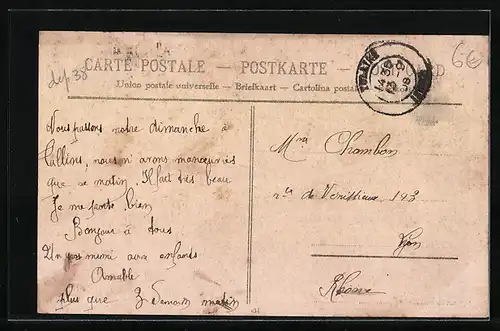 dep 38
6€
CARTE POSTALE — POSTKARTE
Union postale universelle — Briefkaart — Cartolina postal
Nous passons notre dimanche à
Tullins, nous n'avons manœuvrés
que ce matin. Il fait très beau
Je me porte bien
Bonjour à tous
Un gros mimi aux enfants
Amable
plus que 3 demain matin
Mme Chambon
rue de Vénissieux 143
Lyon
Rhône